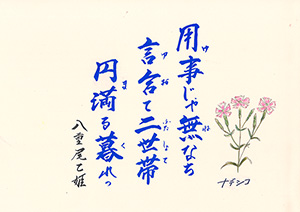 用事じゃ無なち
言て二世帯
円満る暮れっ
八重尾乙姫
ナデシコ